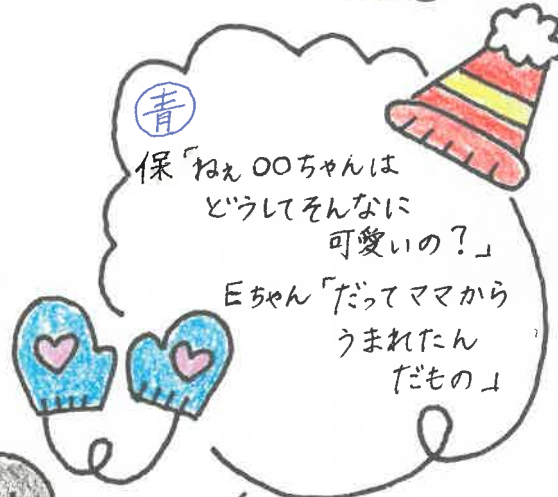 青
保「ねぇ〇〇ちゃんは
どうしてそんなに
可愛いの?」
Eちゃん「だってママから
うまれたん
だもの」